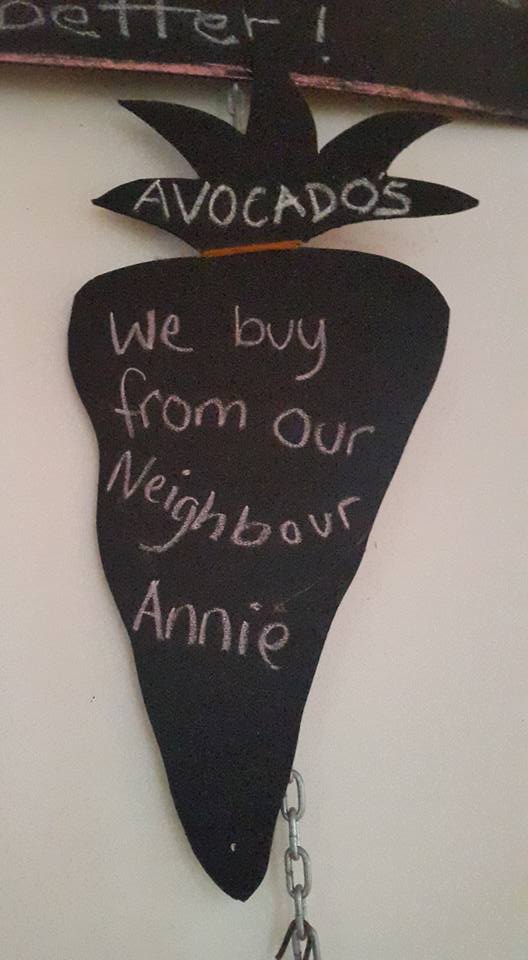 better!
AVOCADO'S
We buy
from our
Neighbour
Annie